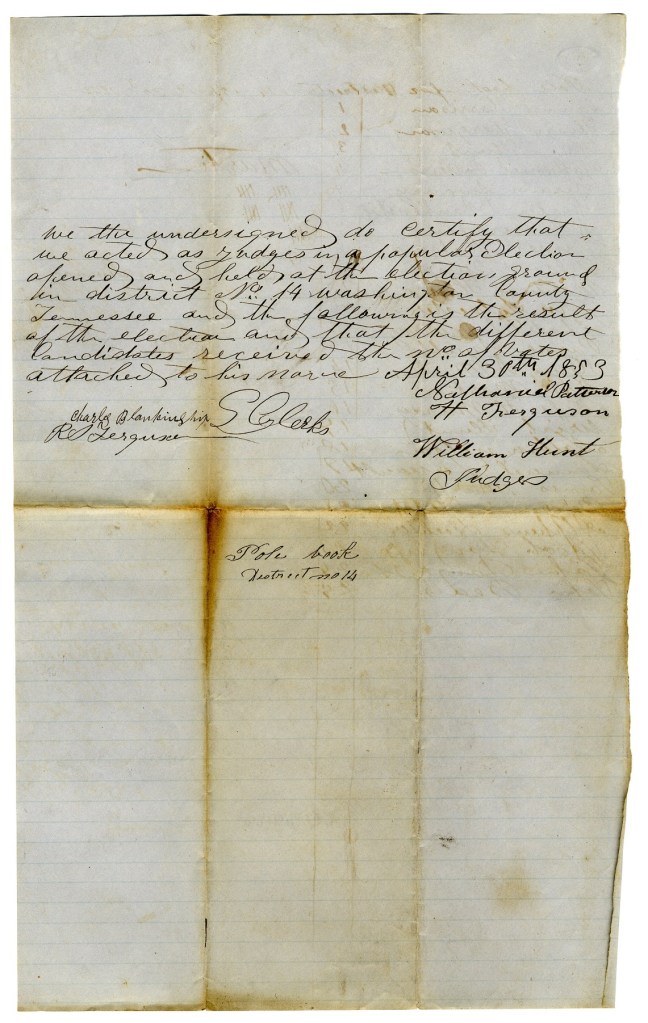 we the undersigned do certify that
we acted as Judges in a popular Election
opened and held at the election ground
in district No 14 Washington County
Tennessee and the following is the result
of the election and that the different
Candidates received the no. of votes
attached to his name April 30th 1853
Nathaniel Patterson
H Ferguson
Charls Blankingship
R S Ferguson
Clerks
William Hunt
Judges
Pole book
District no 14